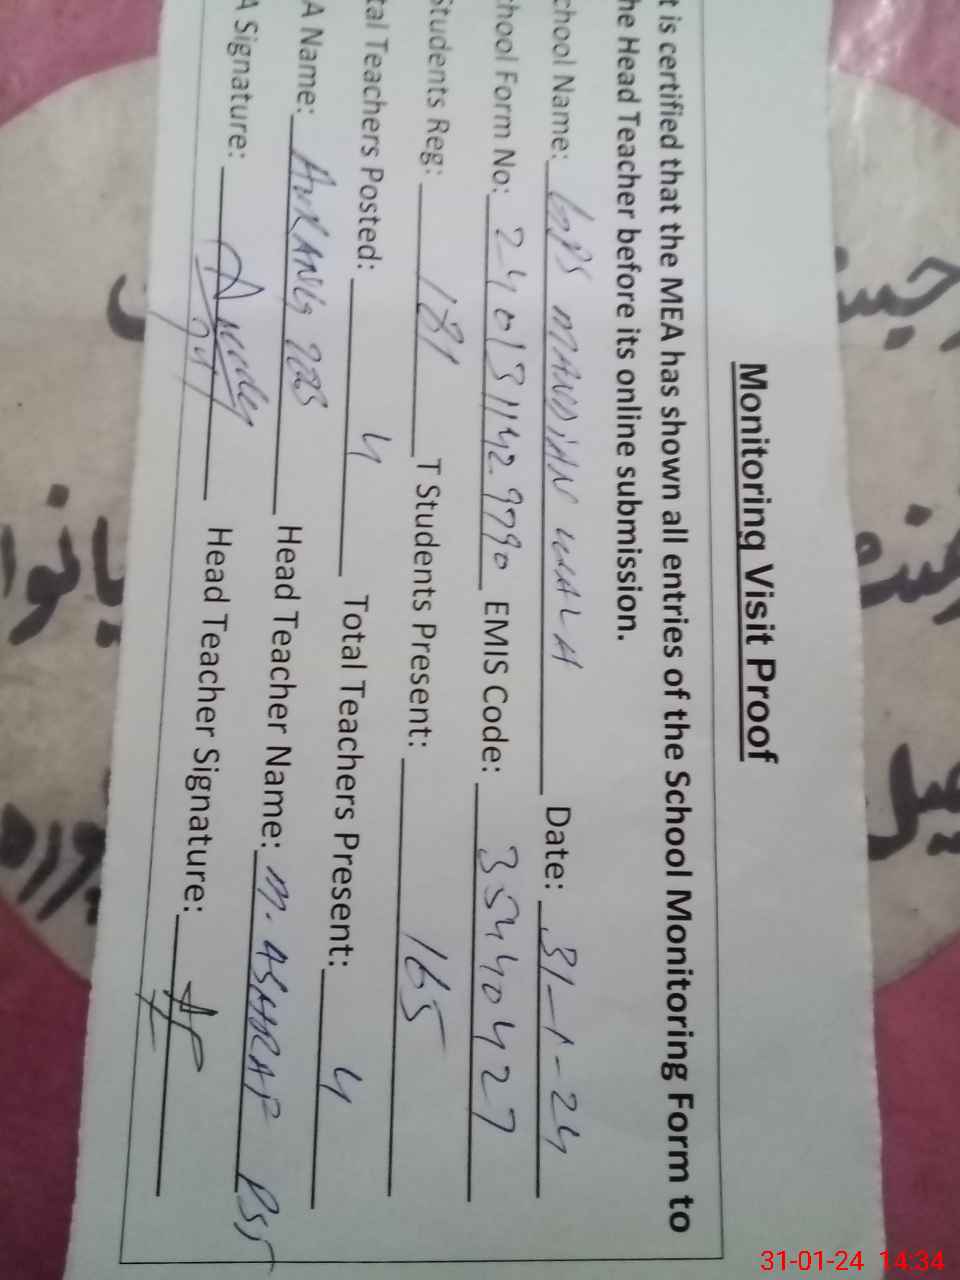 Monitoring Visit Proof
t is certified that the MEA has shown all entries of the School Monitoring Form to
he Head Teacher before its online submission.
chool Name: GPS MANDIAN WALA Date: 31-1-24
chool Form No: 24013114299790 EMIS Code: 35440427
Students Reg: 181 T Students Present: 165
tal Teachers Posted: 4 Total Teachers Present: 4
A Name: AURANG ZEB Head Teacher Name: M. ASHRAF PST
A Signature: Head Teacher Signature:
31-01-24 14:34